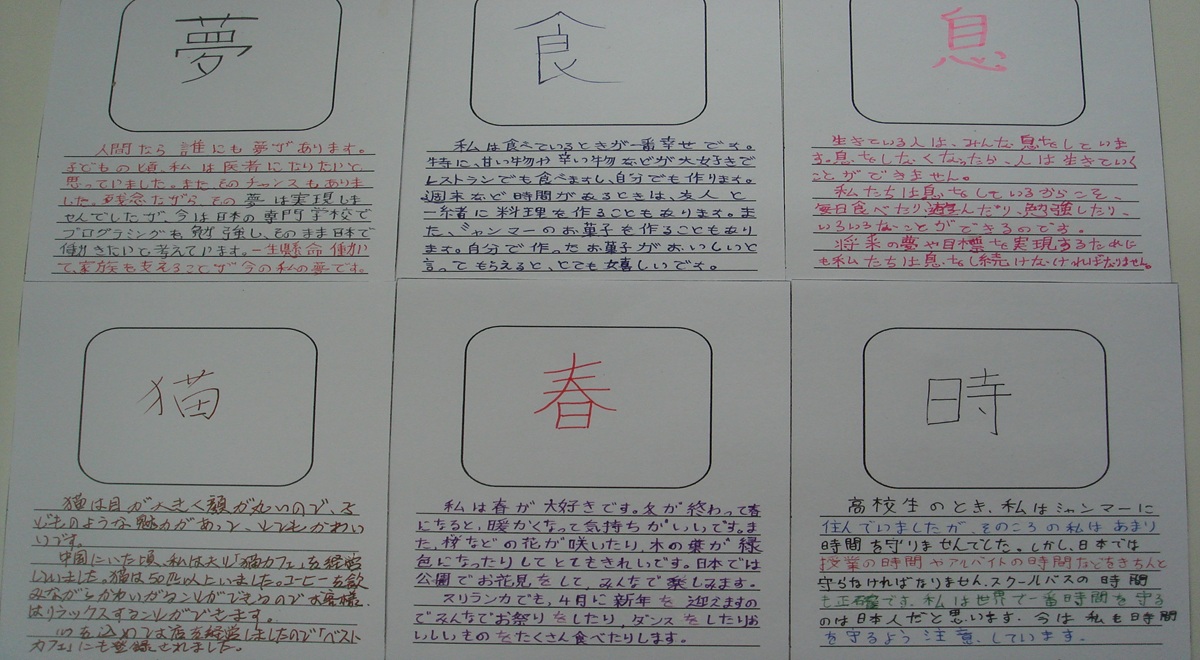 夢
人間なら誰にも夢があります。
子どもの頃、私は医者になりたいと
思っていました。また そのチャンスもありま
した。残念ながら、その夢は実現しま
せんでしたが、今は日本の専門学校で
プログラミングも勉強し、そのまま日本で
働きたいと考えています。一生懸命働い
て、家族も支えることが今の私の夢です。
食
私は食べているときが一番幸せです。
特に、甘い物や辛い物などが大好きで
レストランでも食べますし、自分でも作ります。
週末など時間があるときは、友人と
一緒に料理を作ることもあります。ま
た、ミャンマーのお菓子を作ることもあり
ます。自分で作ったお菓子がおいしいと
言ってもらえると、とても嬉しいです。
息
生きている人は、みんな息をしていま
す。息をしなくなったら、人は生きていく
ことができません。
私たちは息をしているからこそ、
毎日食べたり、遊んだり、勉強したり、
いろいろなことができるのです。
将来の夢や目標を実現するために
も私たちは息をし続けなければなりません。
猫
猫は目が大きく顔が丸いので、子
どものような魅力があって、とてもかわい
いです。
中国にいた頃、私は犬
猫カフェ」を経営
していました。猫は50匹以上いました。コーヒーを飲
みながらかわいがることができるので お客様
はリラックスすることができます。
心を込めて
店を経営しましたので「ベスト
カフェ」にも登録されました。
春
私は春が大好きです。冬が終わって春
になると、暖かくなって気持ちがいいです。ま
た、桜などの花が咲いたり、木の葉が緑
色になったりしてとてもきれいです。日本では
公園でお花見をして、みんなで楽しみます。
スリランカでも、4月に新年を迎えますの
でみんなでお祭りをしたり、ダンスをしたりお
いしいものをたくさん食べたりします。
時
高校生のとき、私はミャンマーに
住んでいましたが、そのころの私はあまり
時間を守りませんでした。しかし、日本では
授業の時間やアルバイトの時間などをきちんと
守らなければなりません。スクールバスの時間
も正確です。私は世界で一番時間を守る
のは日本人だと思います。今は私も時間
を守るよう注意しています。